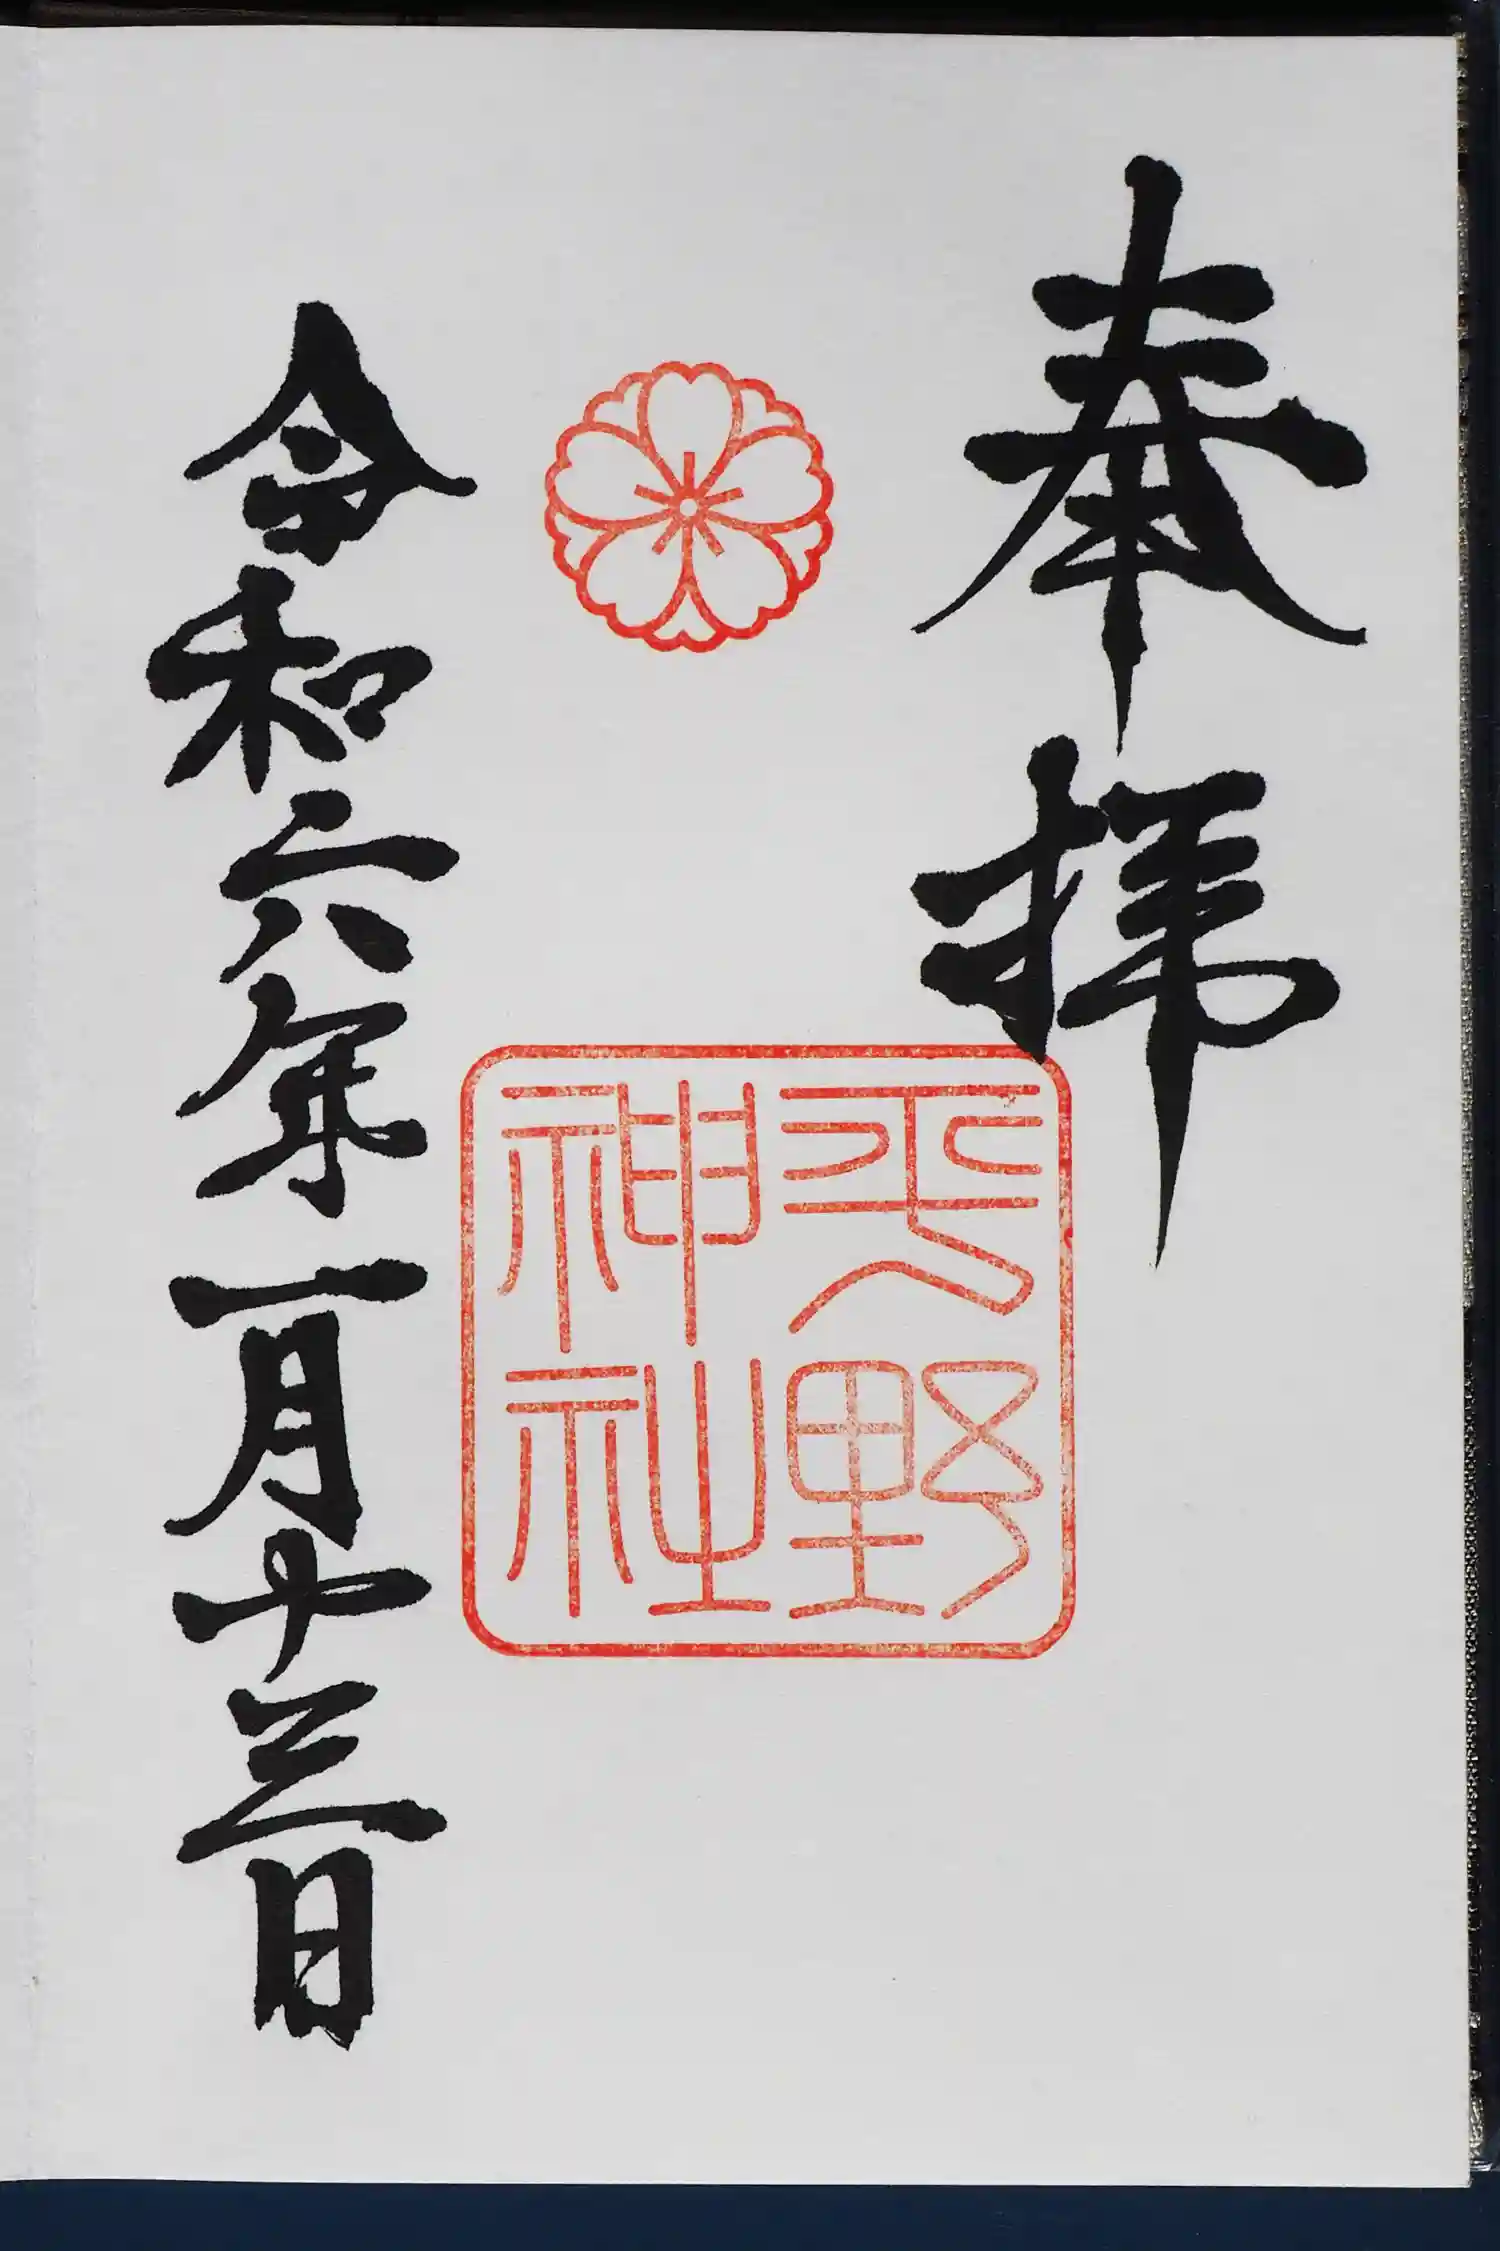 奉拝
平野神社
令和六年一月十三日